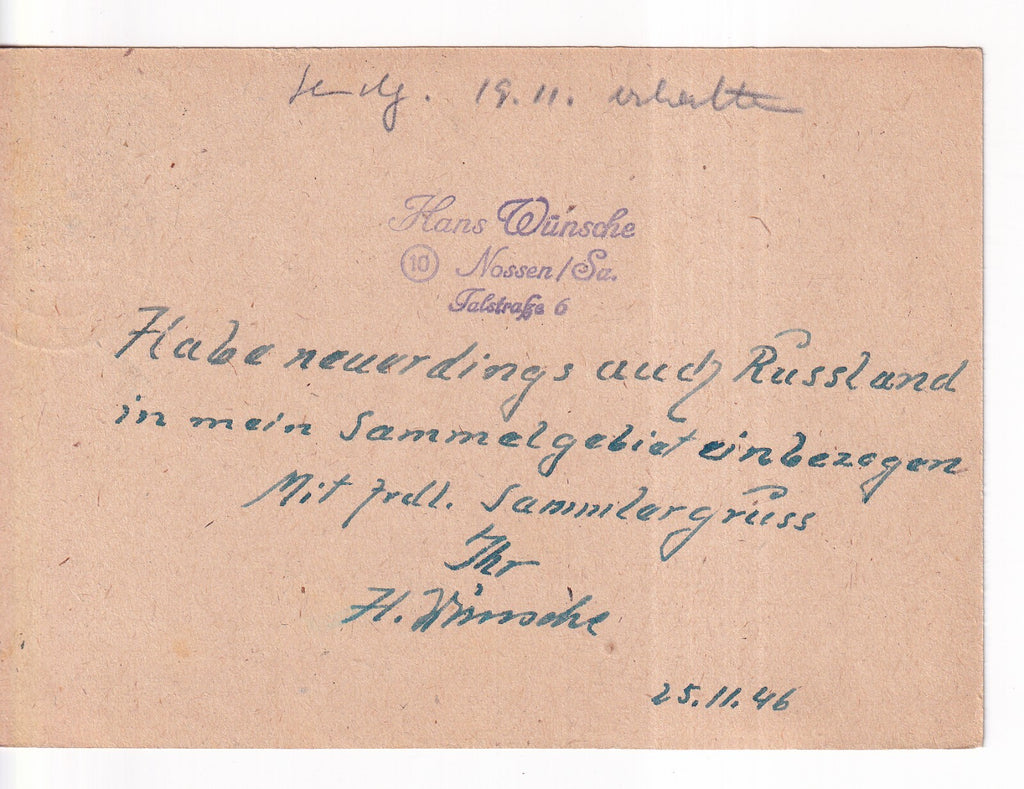 Sendg. 19.11. erhalten
Hans Wünsche
10 Nossen/Sa.
Talstraße 6
Habe neuerdings auch Russland
in mein Sammelgebiet einbezogen
Mit frdl. Sammlergruss
Ihr
H. Wünsche
25.11.46